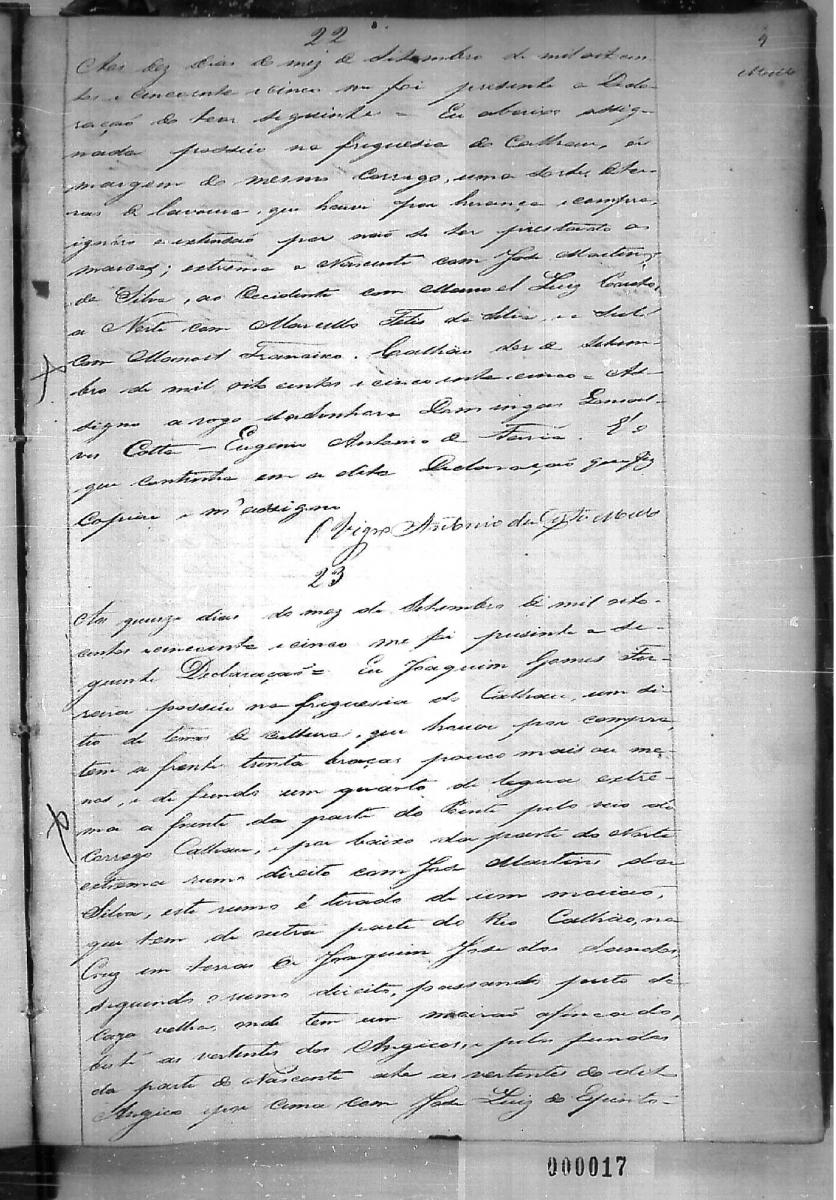 22
9
Mello
Aos dez dias do mez de Setembro de mil oitocen
tos e cincoenta e cinco me foi presente a Decla
ração do teor seguinte = Eu abaixo assig
nada possuo na freguesia do Calhau, á
margem do mesmo Corrego, uma sorte de ter
ras de lavoura, que houve por herança e compra,
ignóro a extensão por não se ter prestado as
marcaz; extrema a Nascente com José Martins
da Silva, ao Occidente com Manoel Luiz
a Norte com Marcellos Felis da Silva, e a Sul
com Manoel Francisco. Calhão dez de Setem
bro de mil oito centos e cincoenta e cinco = As
signo a rogo da Senhora Domingas Gonsal
ves Cotta - Eugenio Antonio de Faria. E' o
que continha em a dita Declaração que fiz
copiar e m'assigno
O Vigro Antonio de Mello
23
Aos quinze dias do mez de Setembro de mil oito
centos e cincoenta e cinco me foi presente a se
guinte Declaração = Eu Joaquim Gomes Fer
reira possuo na freguesia do Calhau, um si
tio de terras de cultura, que houve por compra,
tem a frente trinta braças pouco mais ou me
nos, e de fundo um quarto de legua extre
ma a frente da parte do Poente pelo veio do
Corrego Calhau, e por baixo da parte do Norte
extrema rumo direito com José Martins da
Silva, este rumo é tirado de um moirão,
que tem de outra parte do Rio Calhão, na
Cruz em terras de Joaquim José dos Santos,
seguindo o rumo direito, passando perto da
Caza velha, onde tem um moirão afincado,
busté as vertentes dos Angicos, e pelos fundos
da parte do Nascente até as vertentes do dito
Angico e por cima com José Luiz do Espirito-
000017